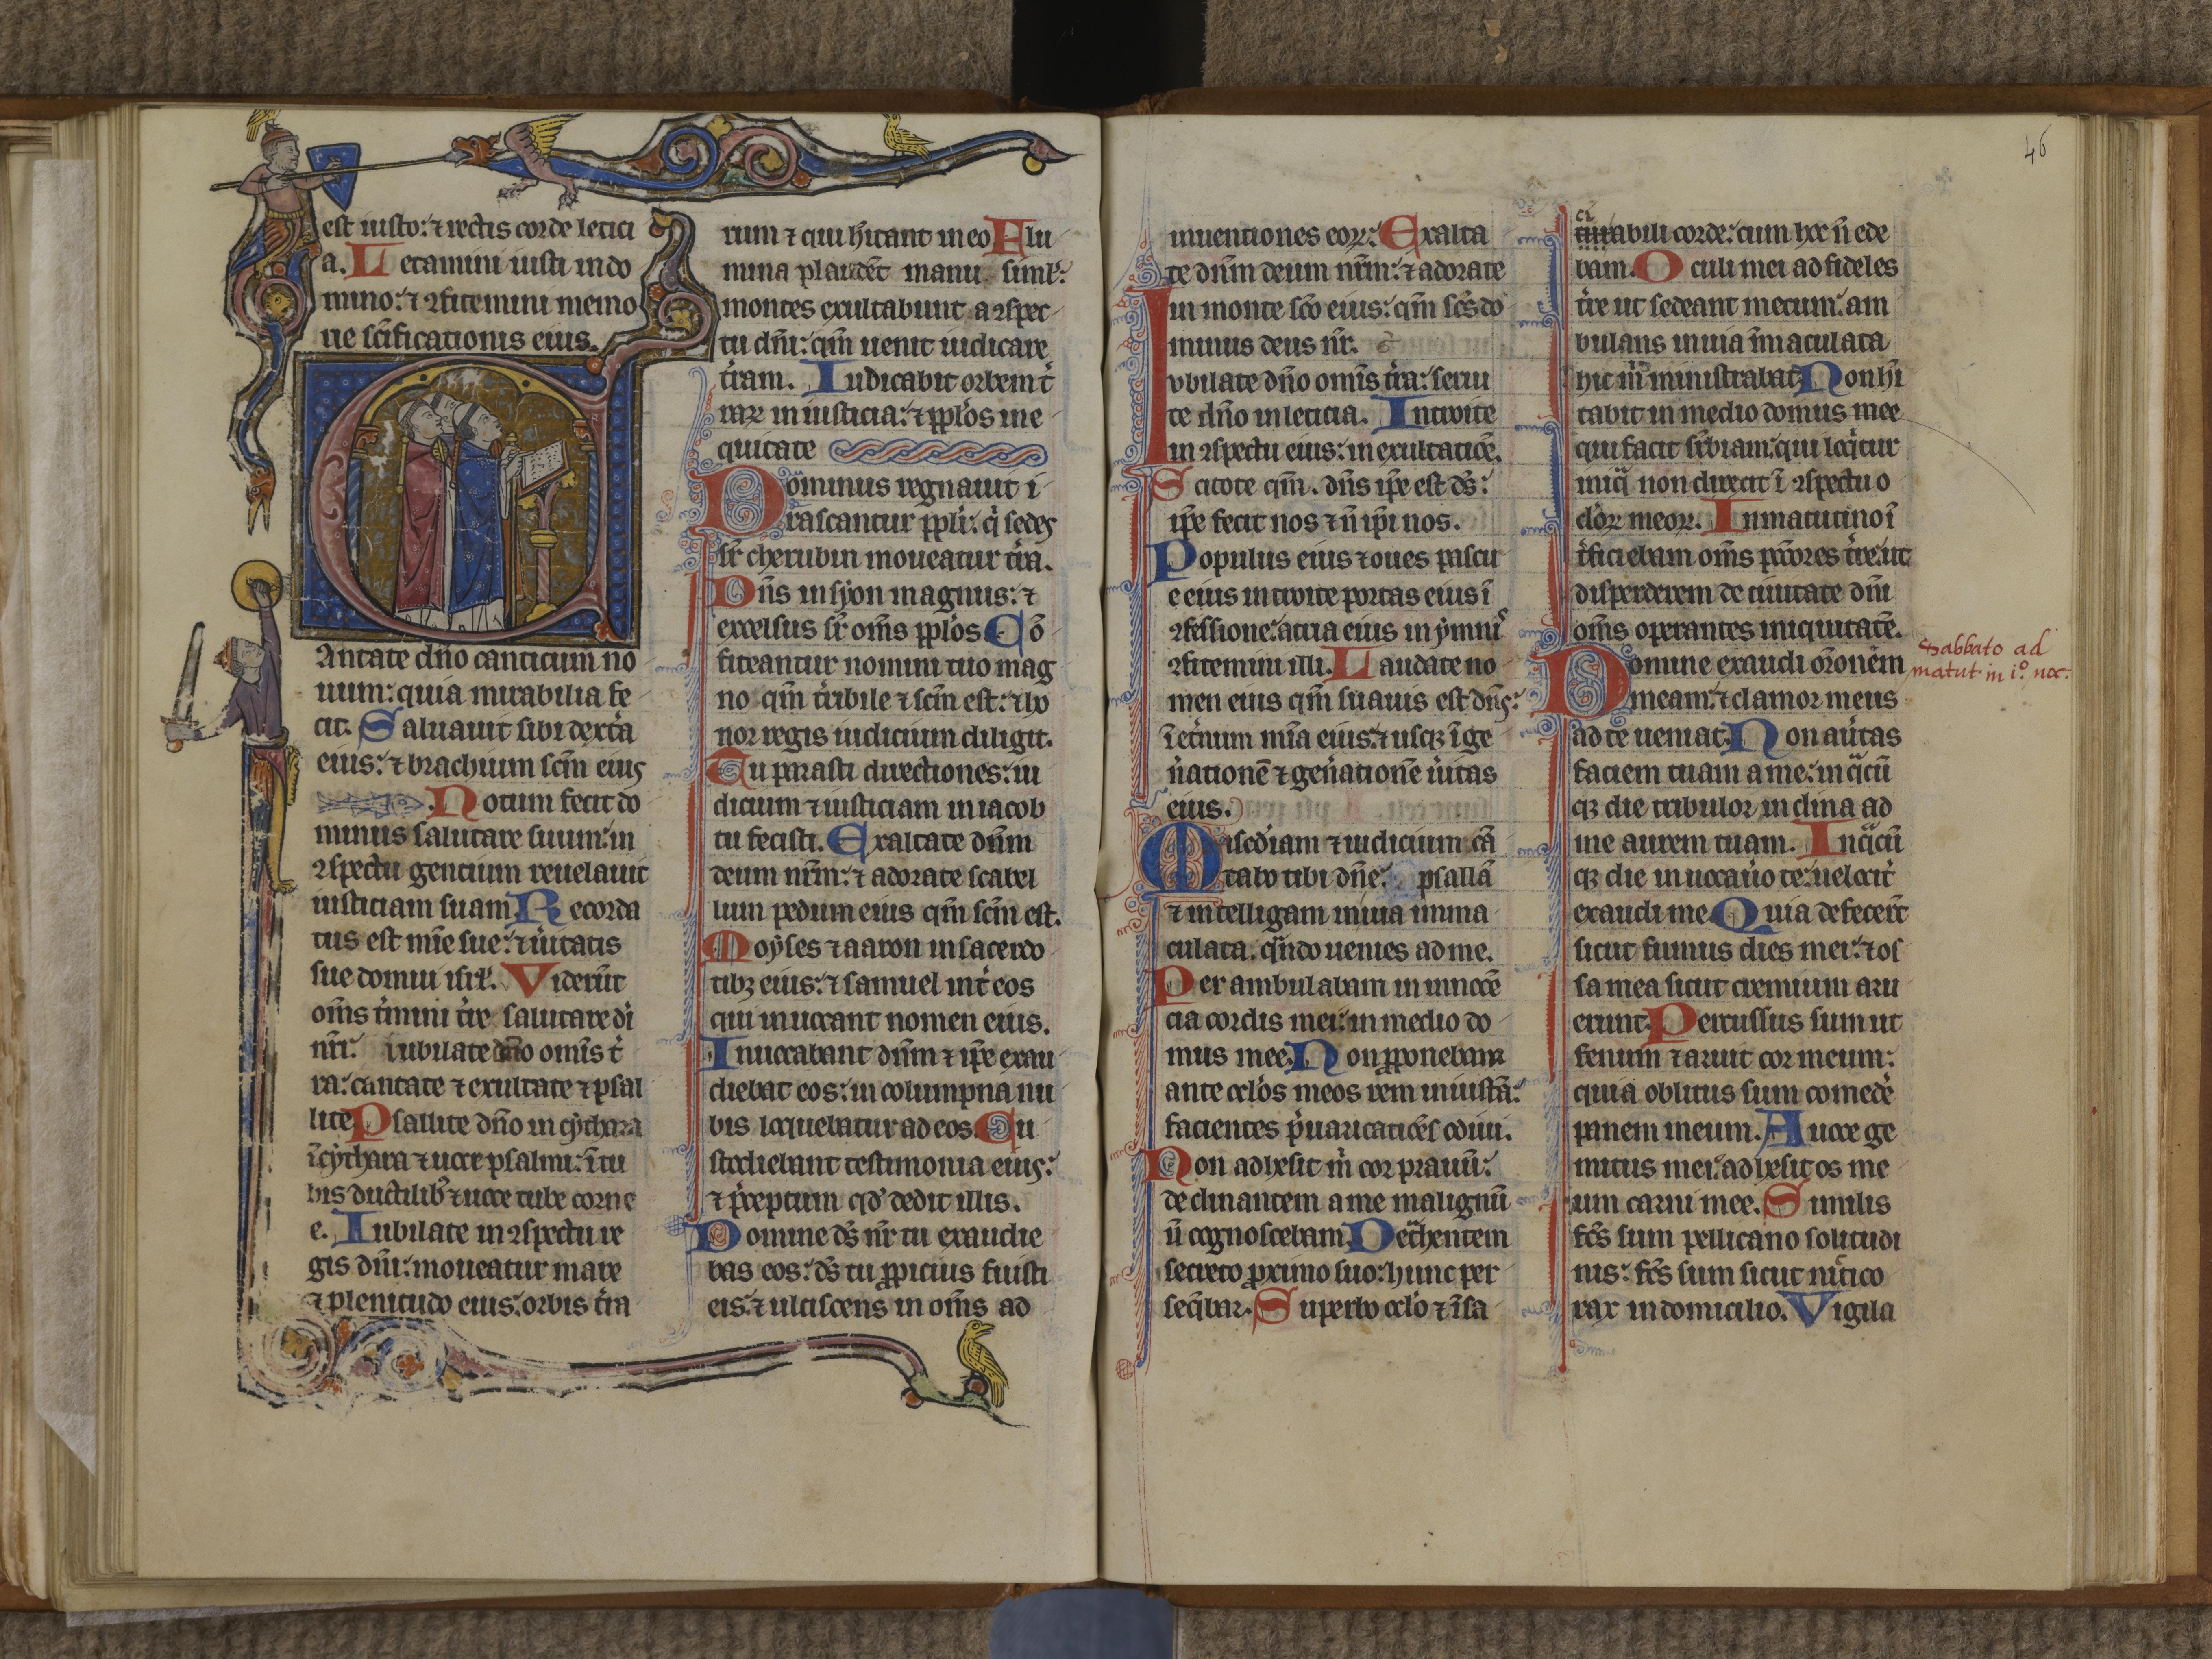 est iusto: ⁊ rectis corde letici
a. Letamini iusti in do
mino: ⁊ ꝯfitemini memo
rie sc̃ificationis eius.
Antate dño canticum no
uum: quia mirabilia fe
cit. Saluauit sibi dext̾a
eius: ⁊ brachium scm̃ eius
Notum fecit do
minus salutare suum: in
ꝯspectu gentium reuelauit
iusticiam suam Recorda
tus est mie sue: ⁊ u̾itatis
sue domui isrl̾. Viderũt
oms̃ t̾mini t̾re salutare di
nr̃i. iubilate dño omis̃ t̾
ra: cantate ⁊ exultate ⁊ psal
lite Psallite dño in cythara
ĩ cythara ⁊ uoce psalmi: ĩ tu
bis ductilib⁹ ⁊ uoce tube corne
e. Iubilate in ꝯspectu re
gis dñi: moueatur mare
⁊ plenitudo eius: orbis t̾ra
rum ⁊ qui h̾itant in eo Flu
mina plaudẽt manu siml̾:
montes exultabunt a ꝯspec
tu dñi: qm̃ uenit iudicare
t̾ram. Iudicabit orbem t̾
raꝝ in iusticia: ⁊ ppl̾os in e
quitate
Dominus regnauit i
rascantur ppl̾i: q̾ sedes
sr̾ cherubin moueatur t̾ra.
Dñs in syon magnus: ⁊
excelsus sr̾ oms̃ ppl̾os Cõ
fiteantur nomini tuo mag
no qm̃ t̾ribile ⁊ scm̃ est: ⁊ ho
nor regis iudicium diligit.
Tu parasti directiones: iu
dicium ⁊ iusticiam in iacob
tu fecisti. Exaltate dñm
deum nr̃m: ⁊ adorate scabel
lum pedum eius qm̃ scm̃ est.
Moyses ⁊ aaron in sacerdo
tibꝫ eius: ⁊ samuel int̾ eos
qui inuocant nomen eius.
Inuocabant dñm ⁊ ip̃e exau
diebat eos: in columpna nu
bis loquebatur ad eos Cu
stodiebant testimonia eius:
⁊ p̾ceptum qd̾ dedit illis.
Domine ds̃ nr̃ tu exaudie
bas eos: ds̃ tu ꝓpicius fuisti
eis: ⁊ ulciscens in oms̃ ad
inuentiones eoꝝ: Exalta
te dñm deum nr̃m: ⁊ adorate
in monte sc̃o eius: qm̃ scs̃ do
minus deus nr̃.
Iubilate dño omis̃ t̾ra: serui
te dño in leticia. Introite
in ꝯspectu eius: in exultatiõe.
Scitote qm̃. dñs ip̃e est ds̃:
ip̃e fecit nos ⁊ ñ ip̃i nos.
Populus eius ⁊ oues pascu
e eius introite portas eius ĩ
ꝯfessione: atria eius in ymni̾
ꝯfitemini illi. Laudate no
men eius qm̃ suauis est dñs:
ĩ et̾num mĩa eius: ⁊ usqꝫ ĩ ge
n̾ationẽ ⁊ gen̾ationẽ u̾itas
eius.
Misedi̾am ⁊ iudicium cã
tabo tibi dñe: psallã
⁊ intelligam in uia inma
culata. qñdo uenies ad me.
Perambulabam in innocẽ
cia cordis mei: in medio do
mus mee Non ꝓponebam
ante ocl̾os meos rem iniustã:
facientes p̾uaricatiões odiui.
Non adhesit m̾ cor prauũ:
declinantem a me malignũ
ñ cognoscebam Det̾hentem
secreto ꝓximo suo: hunc per
seq̾bar. Superbo ocl̾o ⁊ ĩsa
46
ci
abili corde: cum hoc ñ ede
bam. Oculi mei ad fideles
t̾re ut sedeant mecum: am
bulans in uia ĩmaculata
hic m̾ ministrabat Non h̾i
tabit in medio domus mee
qui facit sr̾biam: qui loq̾tur
iniq̾ non direxit ĩ ꝯspectu o
cl̾oꝝ meoꝝ. In matutino ĩ
t̾ficiebam oms̃ pcc̃ores t̾re: ut
disperderem de ciuitate dñi
oms̃ operantes iniquitatẽ.
Domine exaudi or̃onem
meam: ⁊ clamor meus
ad te ueniat. Non au̾tas
faciem tuam a me: in q̾cũ
qꝫ die tribulor inclina ad
me aurem tuam. In q̾cũ
qꝫ die inuocau̾o te: uelocit̾
exaudi me Quia defecer̃t
sicut fumus dies mei: ⁊ os
sa mea sicut cremium aru
erunt. Percussus sum ut
fenum ⁊ aruit cor meum:
quia oblitus sum comede̾
panem meum. A uoce ge
mitus mei: adhesit os me
um carni mee. Similis
fcs̃ sum pellicano solitudi
nis: fcs̃ sum sicut nit̾co
rax in domicilio. Vigila
Sabbato ad
matut. in i.º noc.